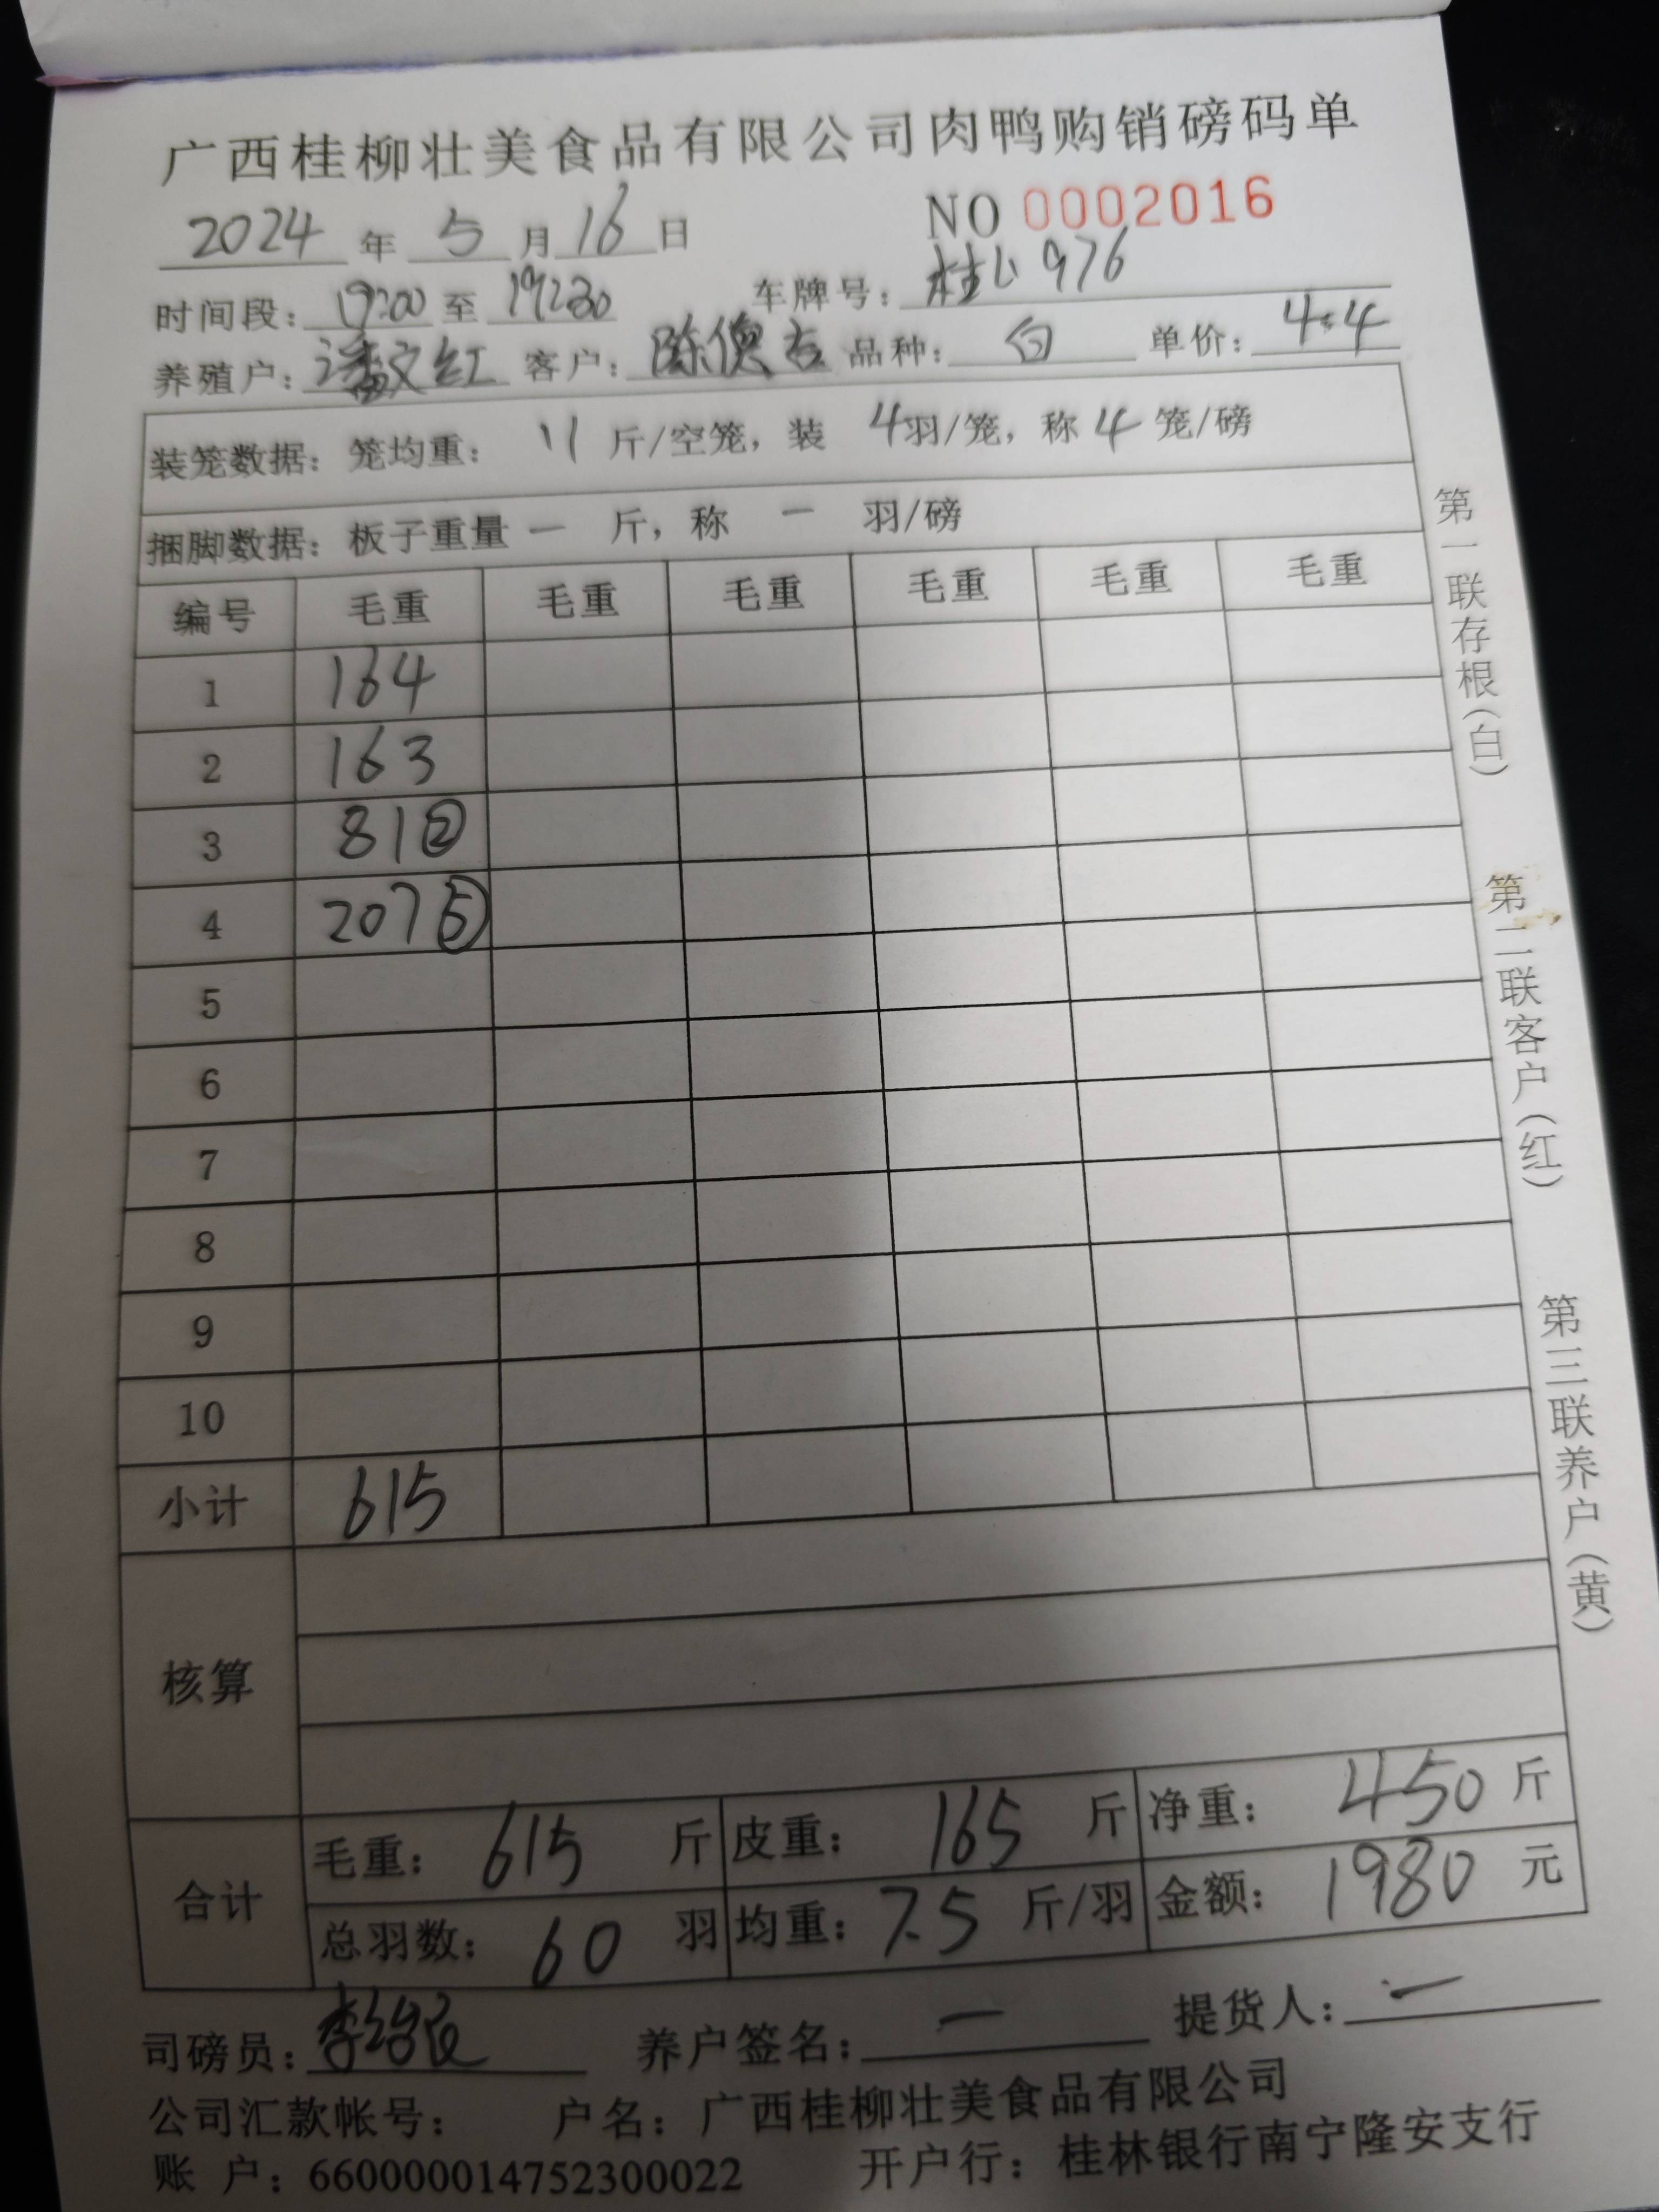 广西桂柳壮美食品有限公司肉鸭购销磅码单
NO 0002016
2024 年 5 月 16 日
时间段: 19:00 至 19:30 车牌号: 976
养殖户: 潘文红 客户: 陈德 品种: 白 单价: 4.4
装笼数据: 笼均重: 11 斤/空笼, 装 4 羽/笼, 称 4 笼/磅
捆脚数据: 板子重量 一 斤, 称 一 羽/磅
编号 毛重 毛重 毛重 毛重 毛重 毛重
1 164
2 163
3 81②
4 207⑤
5
6
7
8
9
10
小计 615
核算
合计 毛重: 615 斤 皮重: 165 斤 净重: 450 斤
总羽数: 60 羽 均重: 7.5 斤/羽 金额: 1980 元
司磅员: 李 养户签名: 一 提货人: 一
公司汇款帐号: 户名: 广西桂柳壮美食品有限公司
账 户: 660000014752300022 开户行: 桂林银行南宁隆安支行
第一联存根(白)
第二联客户(红)
第三联养户(黄)